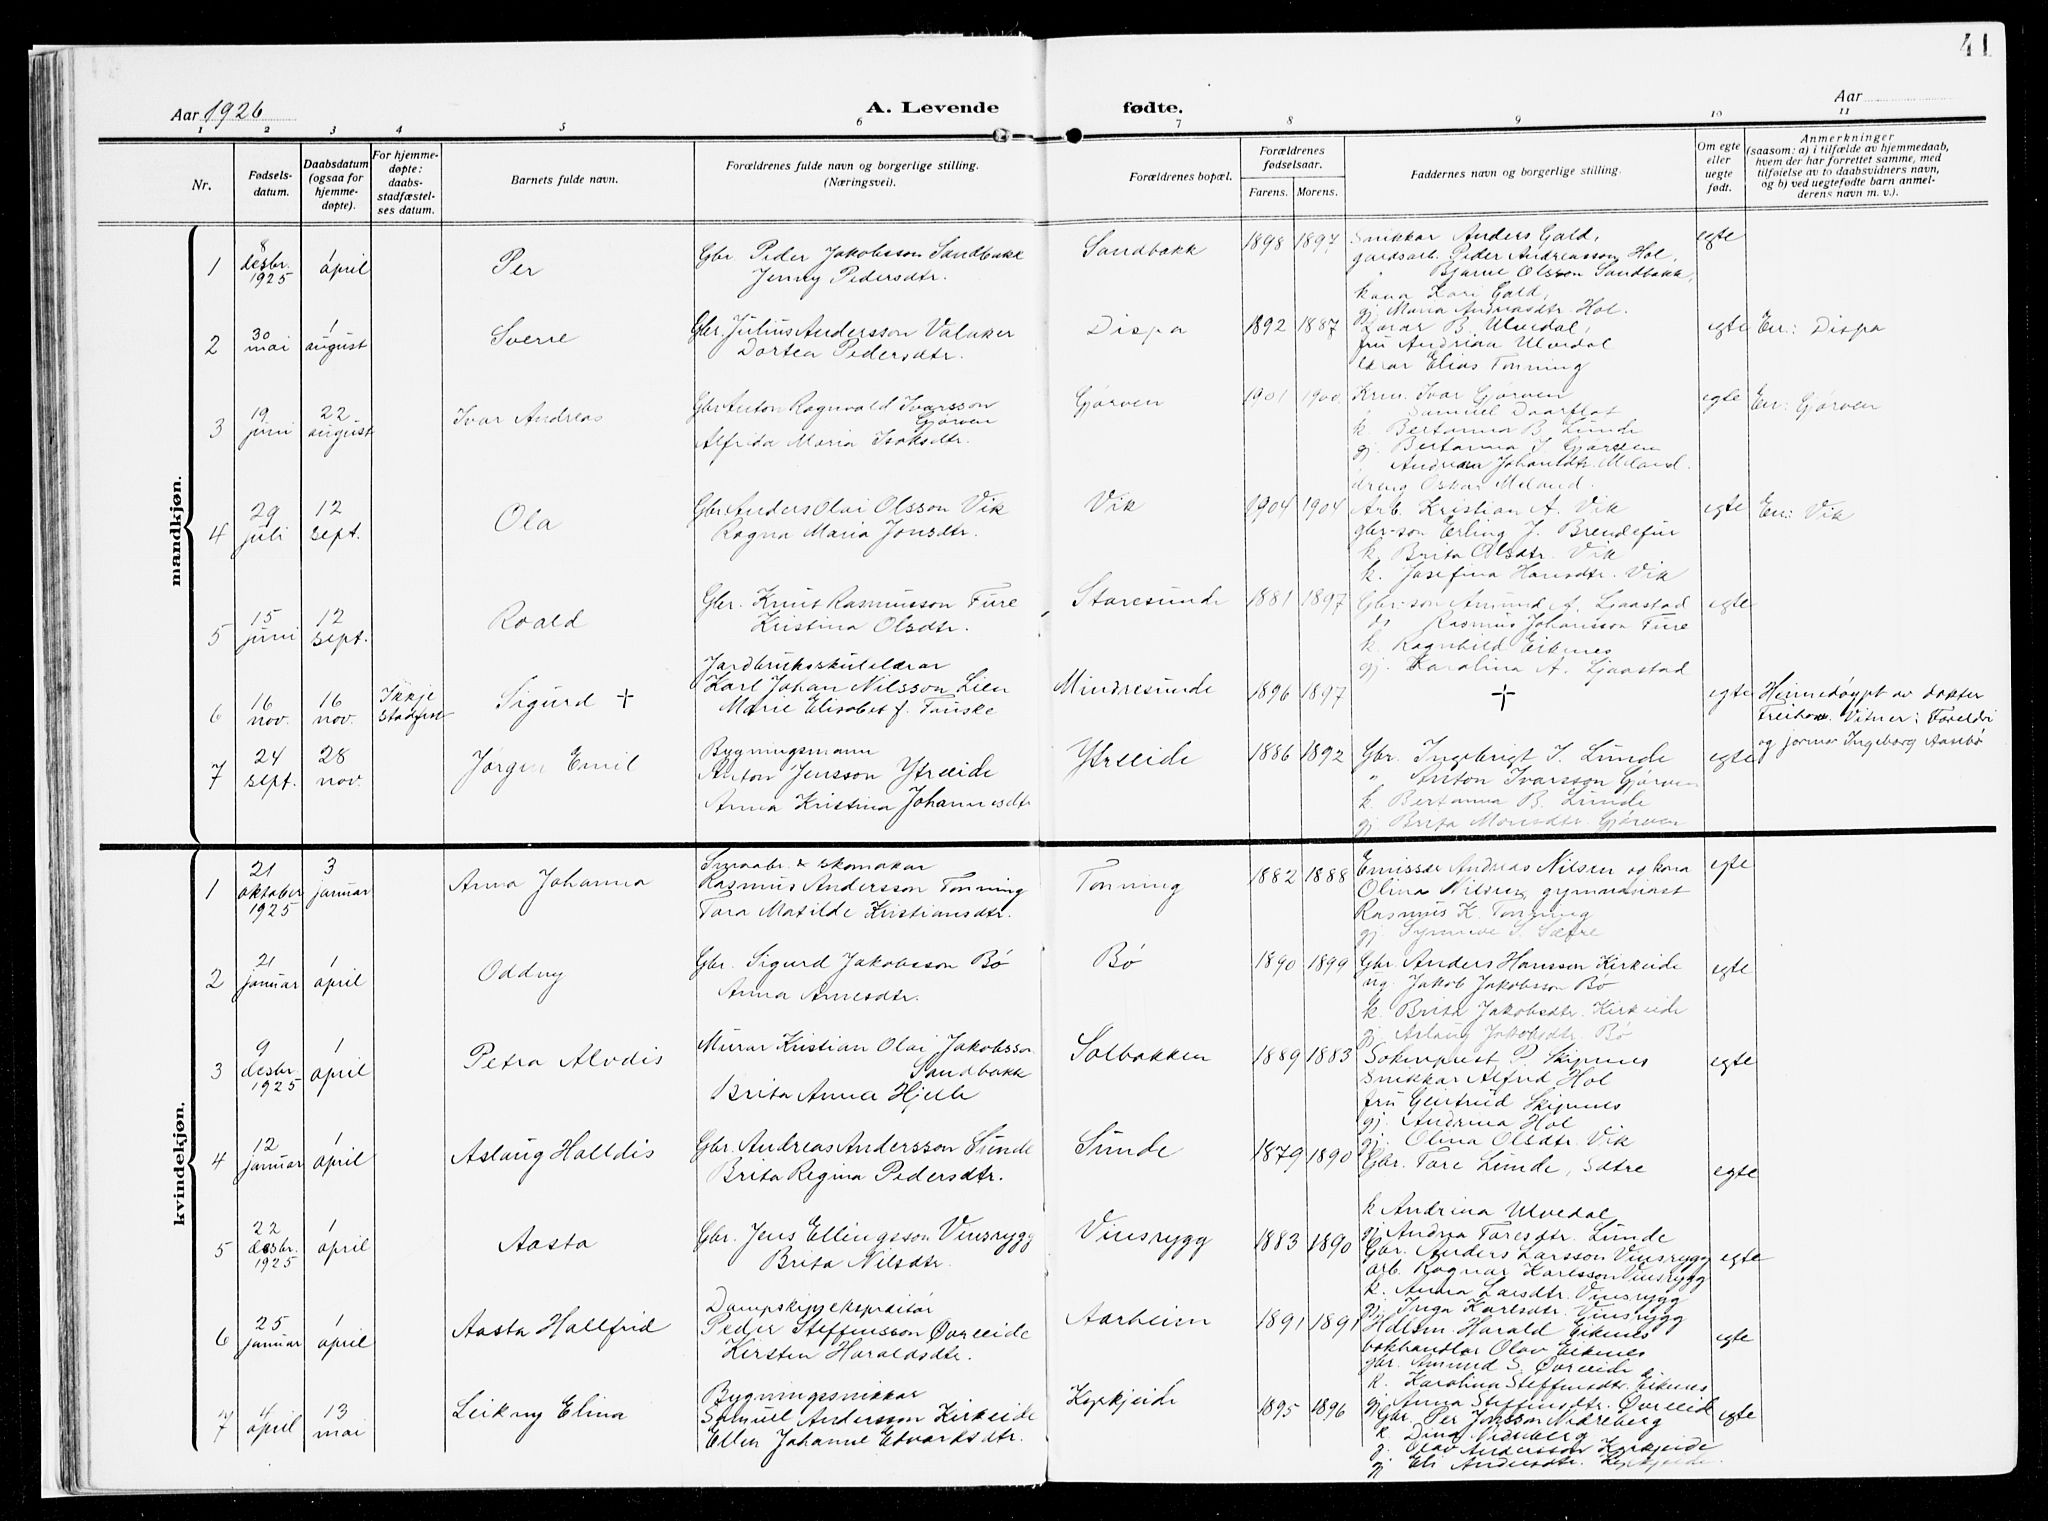 41
Aar 1926
A. Levende fødte.
Aar
1 2 3 4 5 6 7 8 9 10 11
Nr.
Fødsels-
datum.
Daabsdatum
(ogsaa for
hjemme-
døpte).
For hjemme-
døpte:
daabs-
stadfæstel-
ses datum.
Barnets fulde navn.
Forældrenes fulde navn og borgerlige stilling.
(Næringsvei).
Forældrenes bopæl.
Forældrenes
fødselsaar.
Farens. Morens.
Faddernes navn og borgerlig stilling.
Om egte
eller
uegte
født.
Anmerkninger
(saasom: a) i tilfælde av hjemmedaab,
hvem der har forrettet samme, med
tilføielse av to daabsvidners navn,
og b) ved uegtefødte barn anmel-
derens navn m. v.).
mandkjøn.
1
8
desbr.
1925
1
april
Per
Gbr Peder Jakobsson Sandbakk
Jenny Pedersdtr.
Sandbakk
1898 1897
Snikkar Anders Gald,
gardsarb. Peder Andreasson Hol,
" Bjarne Olsson Sandbakk,
kona Kari Gald,
gj. Maria Andreasdtr. Hol.
egte
2
30
mai
1
august
Sverre
Gbr. Julius Andersson Valaker
Dortea Pedersdtr.
Dispa
1892 1887
Lærar B. Ulvedal,
fru Andrina Ulvedal
lærar Elias Tonning
egte
Err: Dispa
3
19
juni
22
august
Ivar Andreas
Gbr Anton Ragnvald Ivarsson
Gjørven
Alfrida Maria Isaksdtr.
Gjørven
1901 1900
Krm. Ivar Gjørven
Samuel Daarflot
k. Bertanna B. Lunde
gj. Bertanna I. Gjørven
Andrea Johansdtr. Meland.
dreng Oskar Meland.
egte
Err: Gjørven
4
29
juli
12
sept.
Ola
Gbr Anders Olai Olsson Vik
Ragna Maria Jonsdtr.
Vik
1904 1904
Arb. Kristian A. Vik
gbr-son Erling J. Brendefur
k. Brita Olsdtr. Vik
k. Josefina Hansdtr. Vik
egte
Err: Vik
5
15
juni
12
sept.
Roald
Gbr. Knut Rasmusson Fure
Kristina Olsdtr.
Staresunde
1881 1897
Gbr-son Amund A. Ljaastad
ds Rasmus Johansson Fure
k. Ragnhild Eikenes
gj. Karolina A. Ljaastad
egte
6
16
nov.
16
nov.
Ikkje
stadfest
Sigurd +
Jordbruksskulelærar
Karl Johan Nilsson Lien
Marie Elisabet f. Fauske
Mindresunde
1896 1897
+
egte
Heimedøypt av dokter
Freihow. Vitner: Foreldri
og jormor Ingeborg Aasebø
7
24
sept.
28
nov.
Jørgen Emil
Bygningsmann
Anton Jensson Ytreeide
Anna Kristina Johannesdtr
Ytreeide
1886 1892
Gbr. Ingebrigt I. Lunde
" Anton Ivarsson Gjørven
k. Bertanna B. Lunde
gj. Brita Monsdtr. Gjørven
egte
kvindekjøn.
1
21
oktober
1925
3
januar
Anna Johanna
Smaabr. & skomakar
Rasmus Andersson Tonning
Tora Matilde Kristiansdtr.
Tonning
1882 1888
Emissær Andreas Nilsen og kona
Olina Nilsen, gymnasiast
Rasmus K. Tonning
gj. Synneve S. Sætre
egte
2
21
januar
1
april
Oddny
Gbr. Sigurd Jakobsson Bø
Anna Arnesdtr.
Bø
1890 1899
Gbr. Anders Hansson Kirkeide
ug. Jakob Jakobsson Bø
k. Brita Jakobsdtr. Kirkeide
gj. Aslaug Jakobsdtr. Bø
egte
3
9
desbr.
1925
1
april
Petra Alvdis
Murar Kristian Olai Jakobsson
Sandbakk
Brita Anna Hjelle
Solbakken
1889 1883
Sokneprest P. Skipenes
Snikkar Alfred Hol
fru Gertrud Skipenes
gj. Andrina Hol
gj. Olina Olsdtr. Vik
egte
4
12
januar
1
april
Aslaug Halldis
Gbr. Andreas Andersson Sunde
Brita Regina Pedersdtr.
Sunde
1879 1890
Gbr. Tore Lunde, Sætre
k Andrina Ulvedal
gj. Andrea Toresdtr. Lunde
egte
5
22
desbr.
1925
1
april
Aasta
Gbr. Jens Ellingsson Vinsrygg
Brita Nilsdtr.
Vinsrygg
1883 1890
Gbr. Anders Larsson Vinsrygg
arb. Ragnar Karlsson Vinsrygg
k. Anna Larsdtr. Vinsrygg
gj. Inga Karlsdtr. Vinsrygg
egte
6
25
januar
1
april
Aasta Hallfrid
Dampskipsekspeditør
Peder Steffensson Øvreeide
Kirsten Haraldsdtr.
Aarheim
1891 1891
Hdlsm. Harald Eikenes
bokhandlar Olav Eikenes
gbr. Amund S. Øvreeide
k. Karolina Steffensdtr. Eikenes
gj. Anna Steffensdtr. Øvreeide
egte
7
4
april
13
mai
Leikny Elina
Bygningssnikkar
Samuel Andersson Kirkeide
Ellen Johanne Edvardsdtr.
Kyrkjeide
1895 1896
Gbr. Per Jonsson Nidreberg
k. Dina Nidreberg
g. Olav Andersson Kyrkjeide
gj Eli Andersdtr. Kyrkjeide.
egte